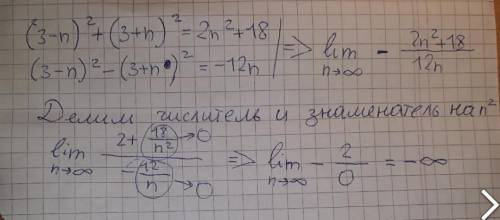 (3-n)² + (3+n)² = 2n²+18
(3-n)² - (3+n)² = -12n
=> lim n→∞ - 2n²+18 / 12n
Делим числитель и знаменатель на n²
lim n→∞ 2+ 18/n² →0 / - 12/n →0 => lim n→∞ - 2/0 = -∞